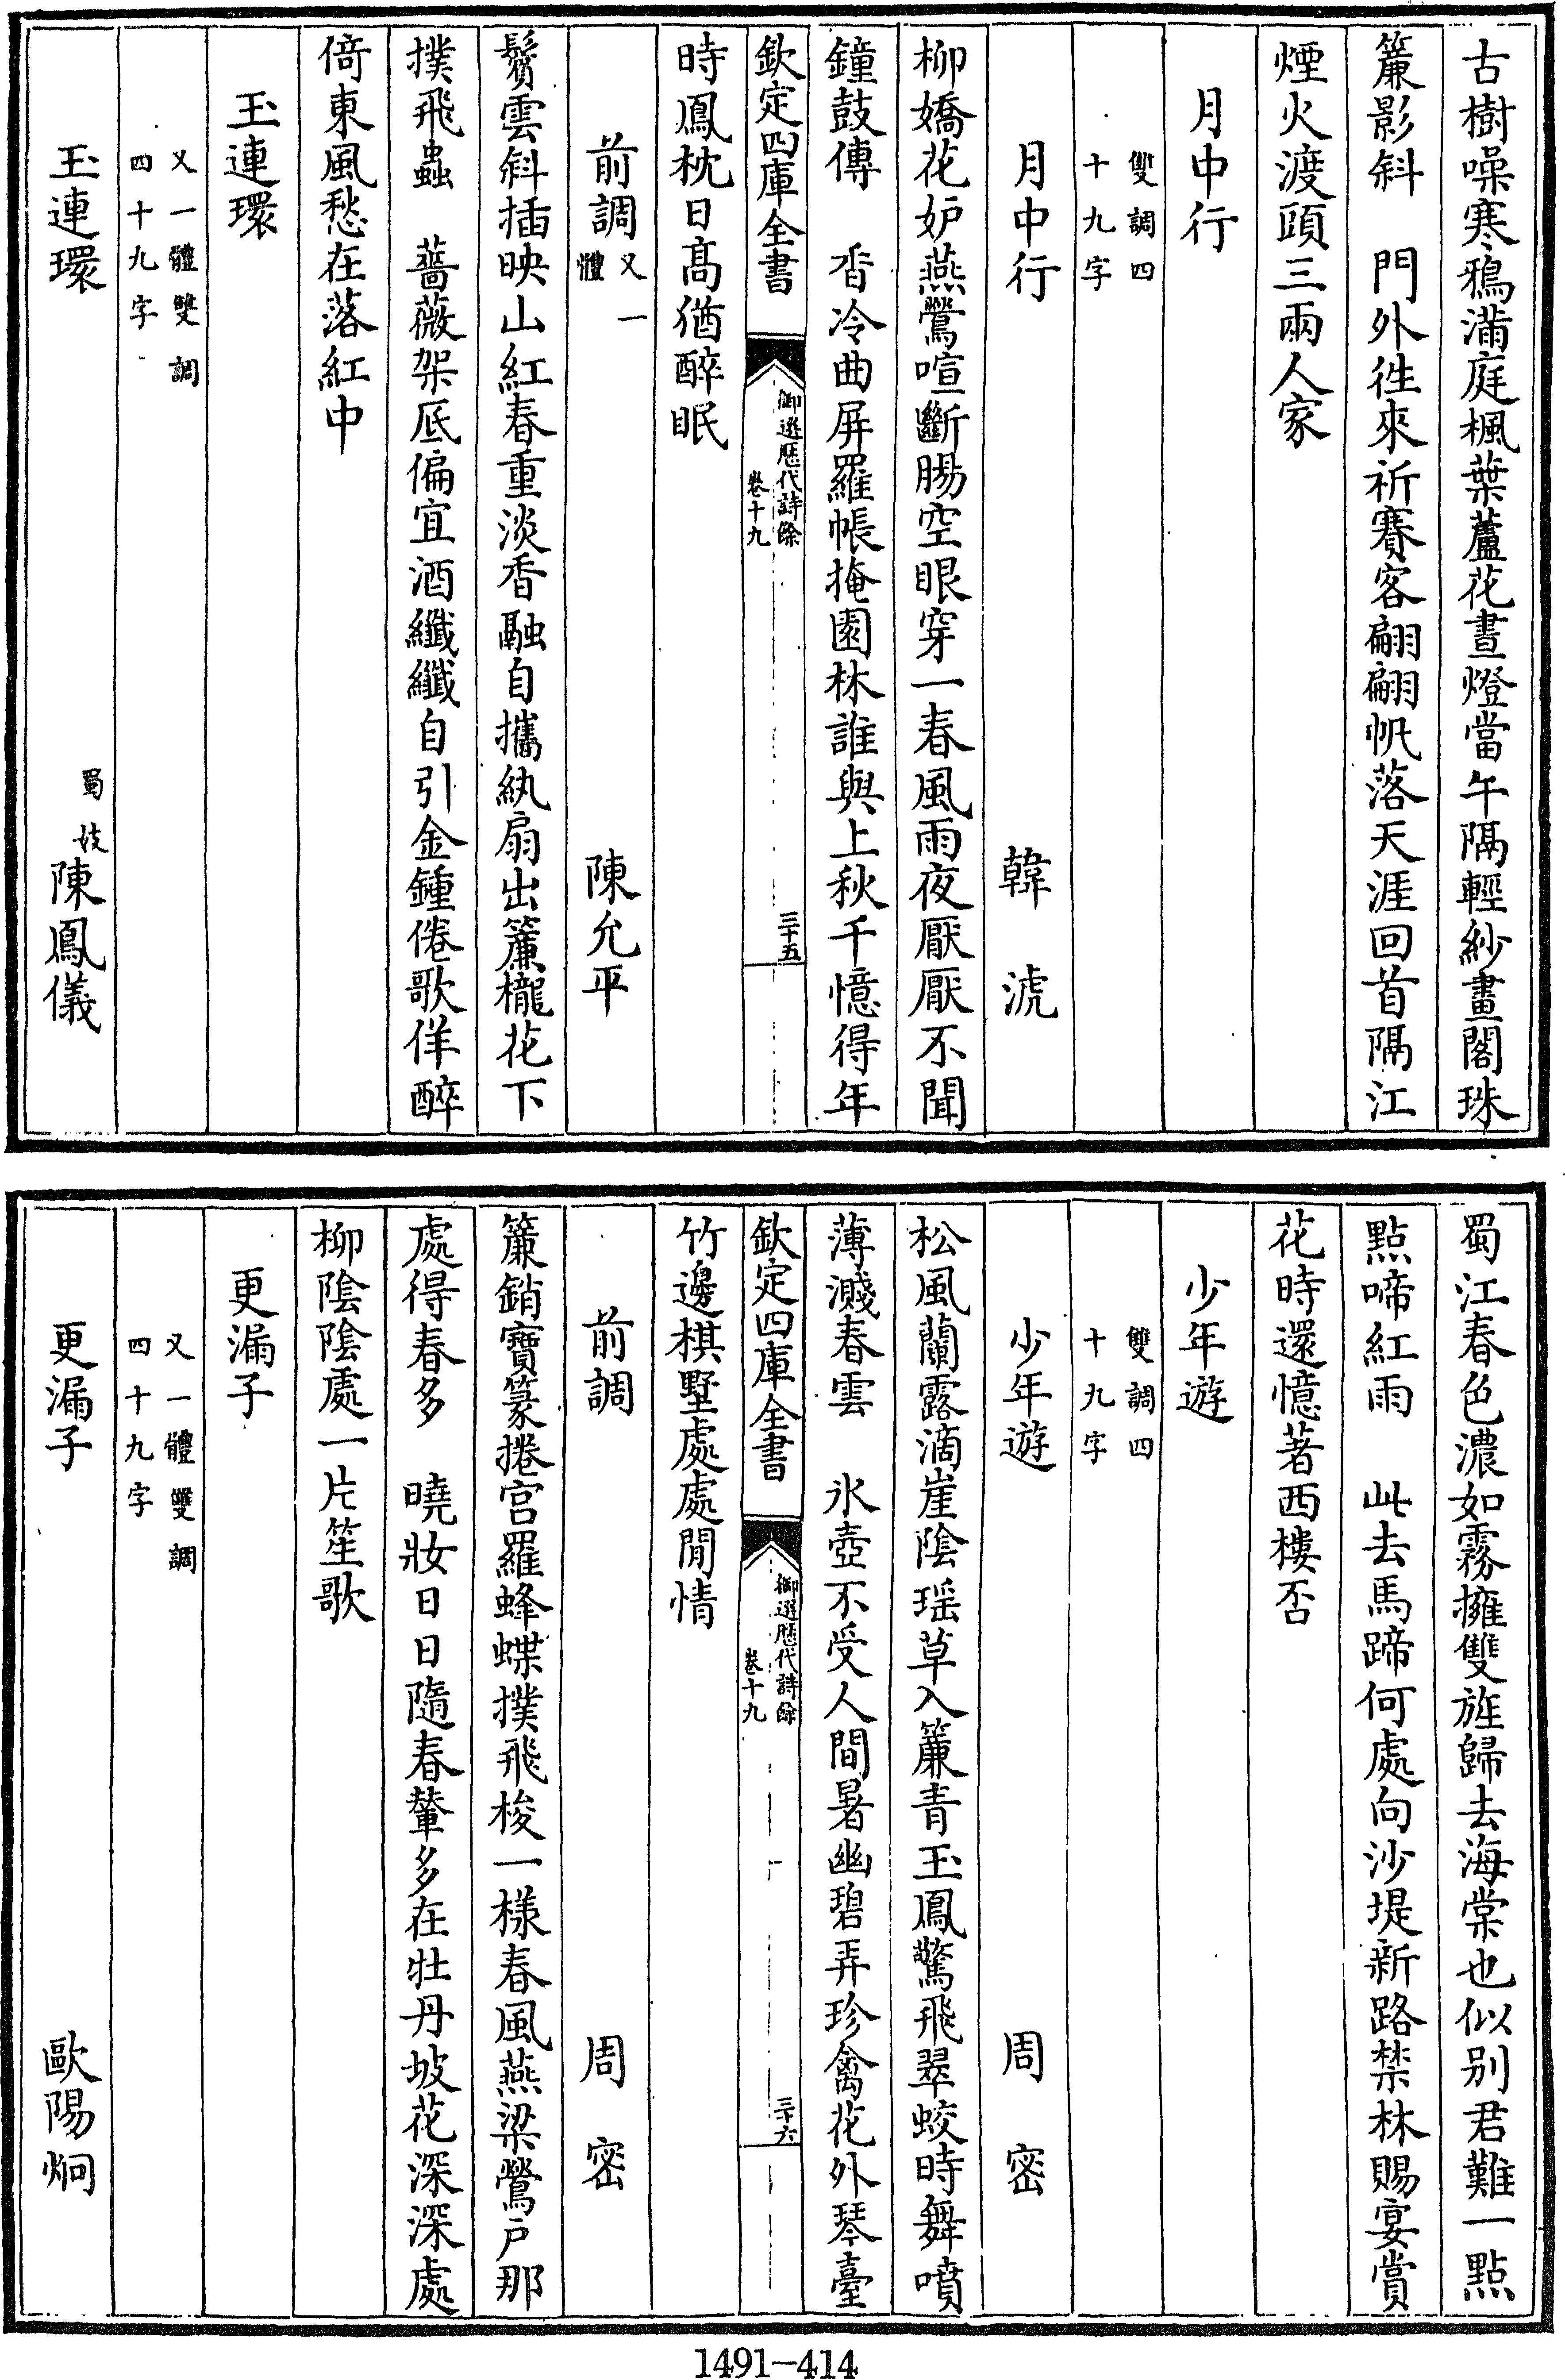 古樹噪寒鴉滿庭楓葉蘆花晝燈當午隔輕紗畫閣珠
簾影斜　門外徃來祈賽客翩翩帆落天涯回首隔江
煙火渡頭三兩人家
月中行
雙調四
十九字
月中行　韓淲
柳嬌花妒燕鶯喧斷腸空眼穿一春風雨夜厭厭不聞
鐘鼓傳　香冷曲屏羅帳掩園林誰與上秋千憶得年
欽定四庫全書
御選歷代詩餘
卷十九
三十五
時鳳枕日高猶醉眠
前調
又一
體
陳允平
鬢雲斜插映山紅春重淡香融自攜紈扇出簾櫳花下
撲飛蟲　薔薇架底偏宜酒纖纖自引金鍾倦歌佯醉
倚東風愁在落紅中
玉連環
又一體雙調
四十九字
玉連環　蜀妓陳鳳儀
蜀江春色濃如霧擁雙旌歸去海棠也似别君難一點
點啼紅雨　此去馬蹄何處向沙堤新路禁林賜宴賞
花時還憶著西樓否
少年遊
雙調四
十九字
少年遊　周密
松風蘭露滴崖陰瑶草入簾青玉鳳驚飛翠蛟時舞噴
薄濺春雲　氷壺不受人間暑幽碧弄珍禽花外琴臺
欽定四庫全書
御選歷代詩餘
卷十九
三十六
竹邊棋墅處處閒情
前調　周密
簾銷寶篆捲宫羅蜂蝶撲飛梭一様春風燕梁鶯户那
處得春多　曉妝日日隨春輦多在牡丹坡花深深處
柳陰陰處一片笙歌
更漏子
又一體雙調
四十九字
更漏子　歐陽炯
1491-414